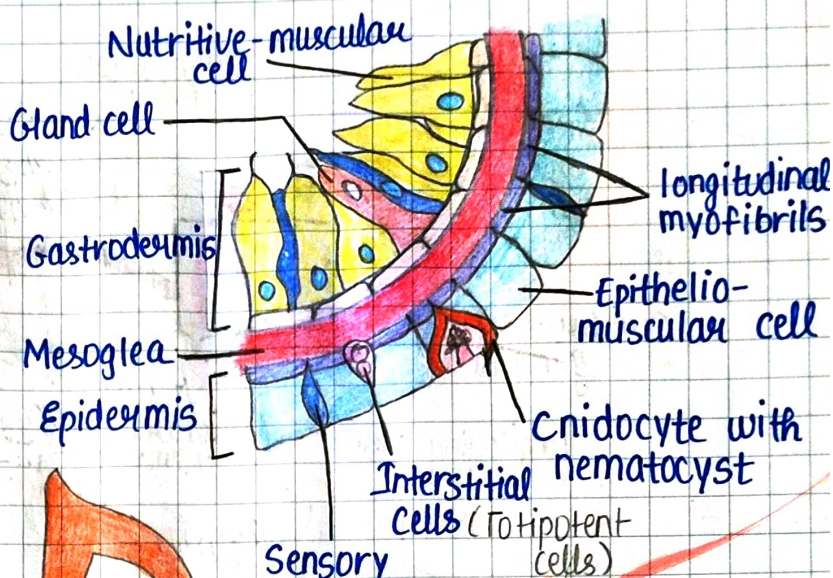 Nutritive-muscular
cell
Gland cell
Gastrodermis
Mesoglea
Epidermis
longitudinal
myofibrils
Epithelio-
muscular cell
Cnidocyte with
nematocyst
Interstitial
cells (Totipotent
cells)
Sensory